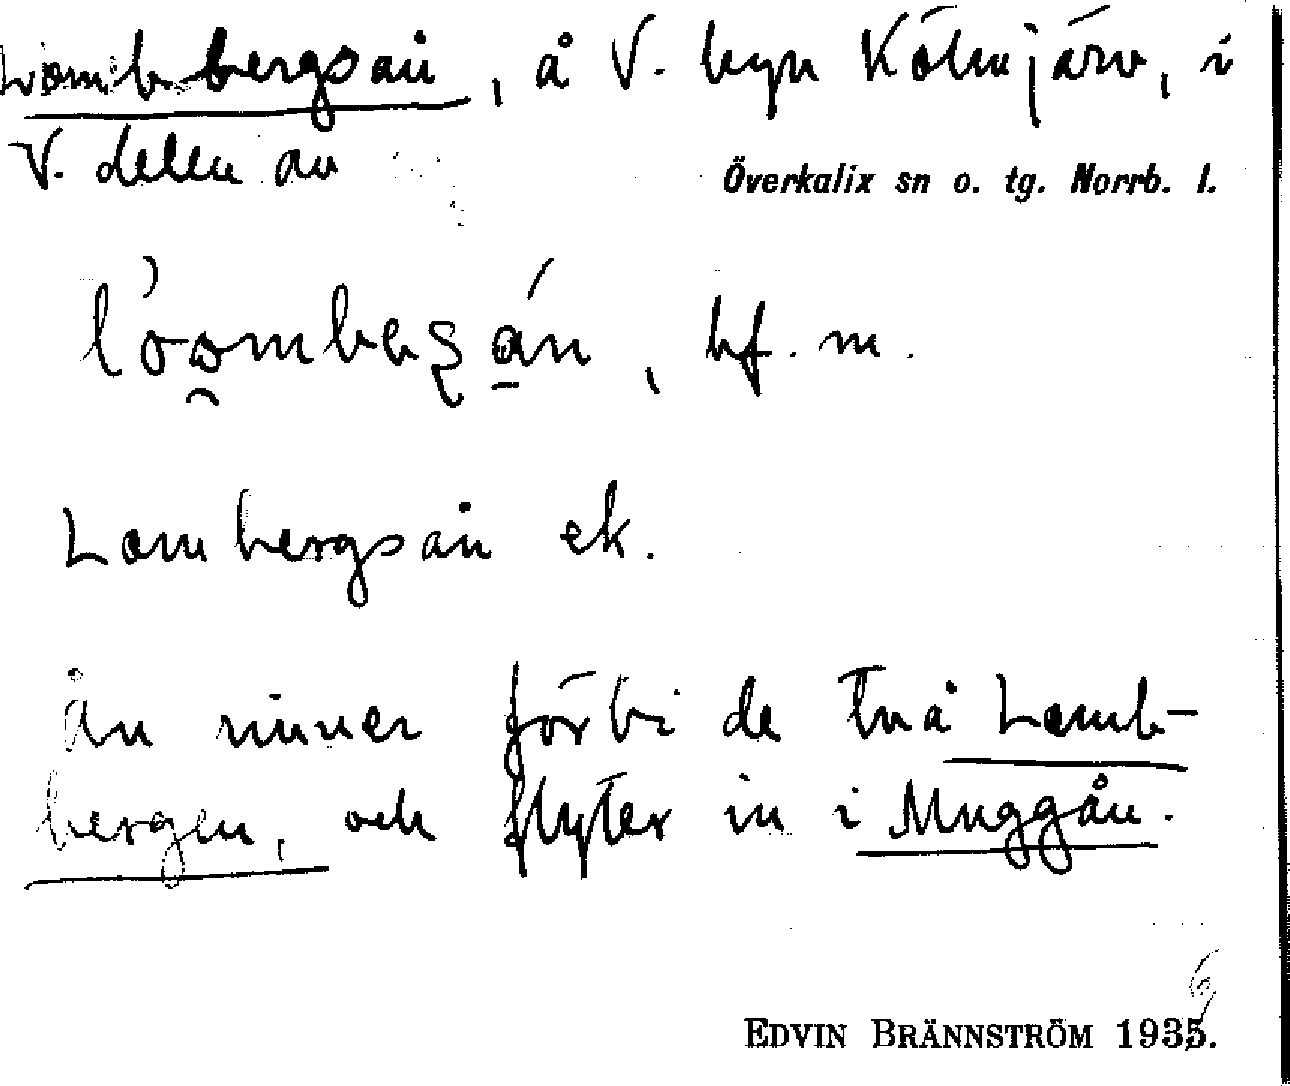 Lombbergsån, å V. byn Kölmjärv, i
V. delen av
Överkalix sn o. tg. Norrb. l.
bf. m.
Lombergsån ek.
ån rinner förbi de två Lomb-
bergen, och flyter in i Muggån.
6
EDVIN BRÄNNSTRÖM 1935.